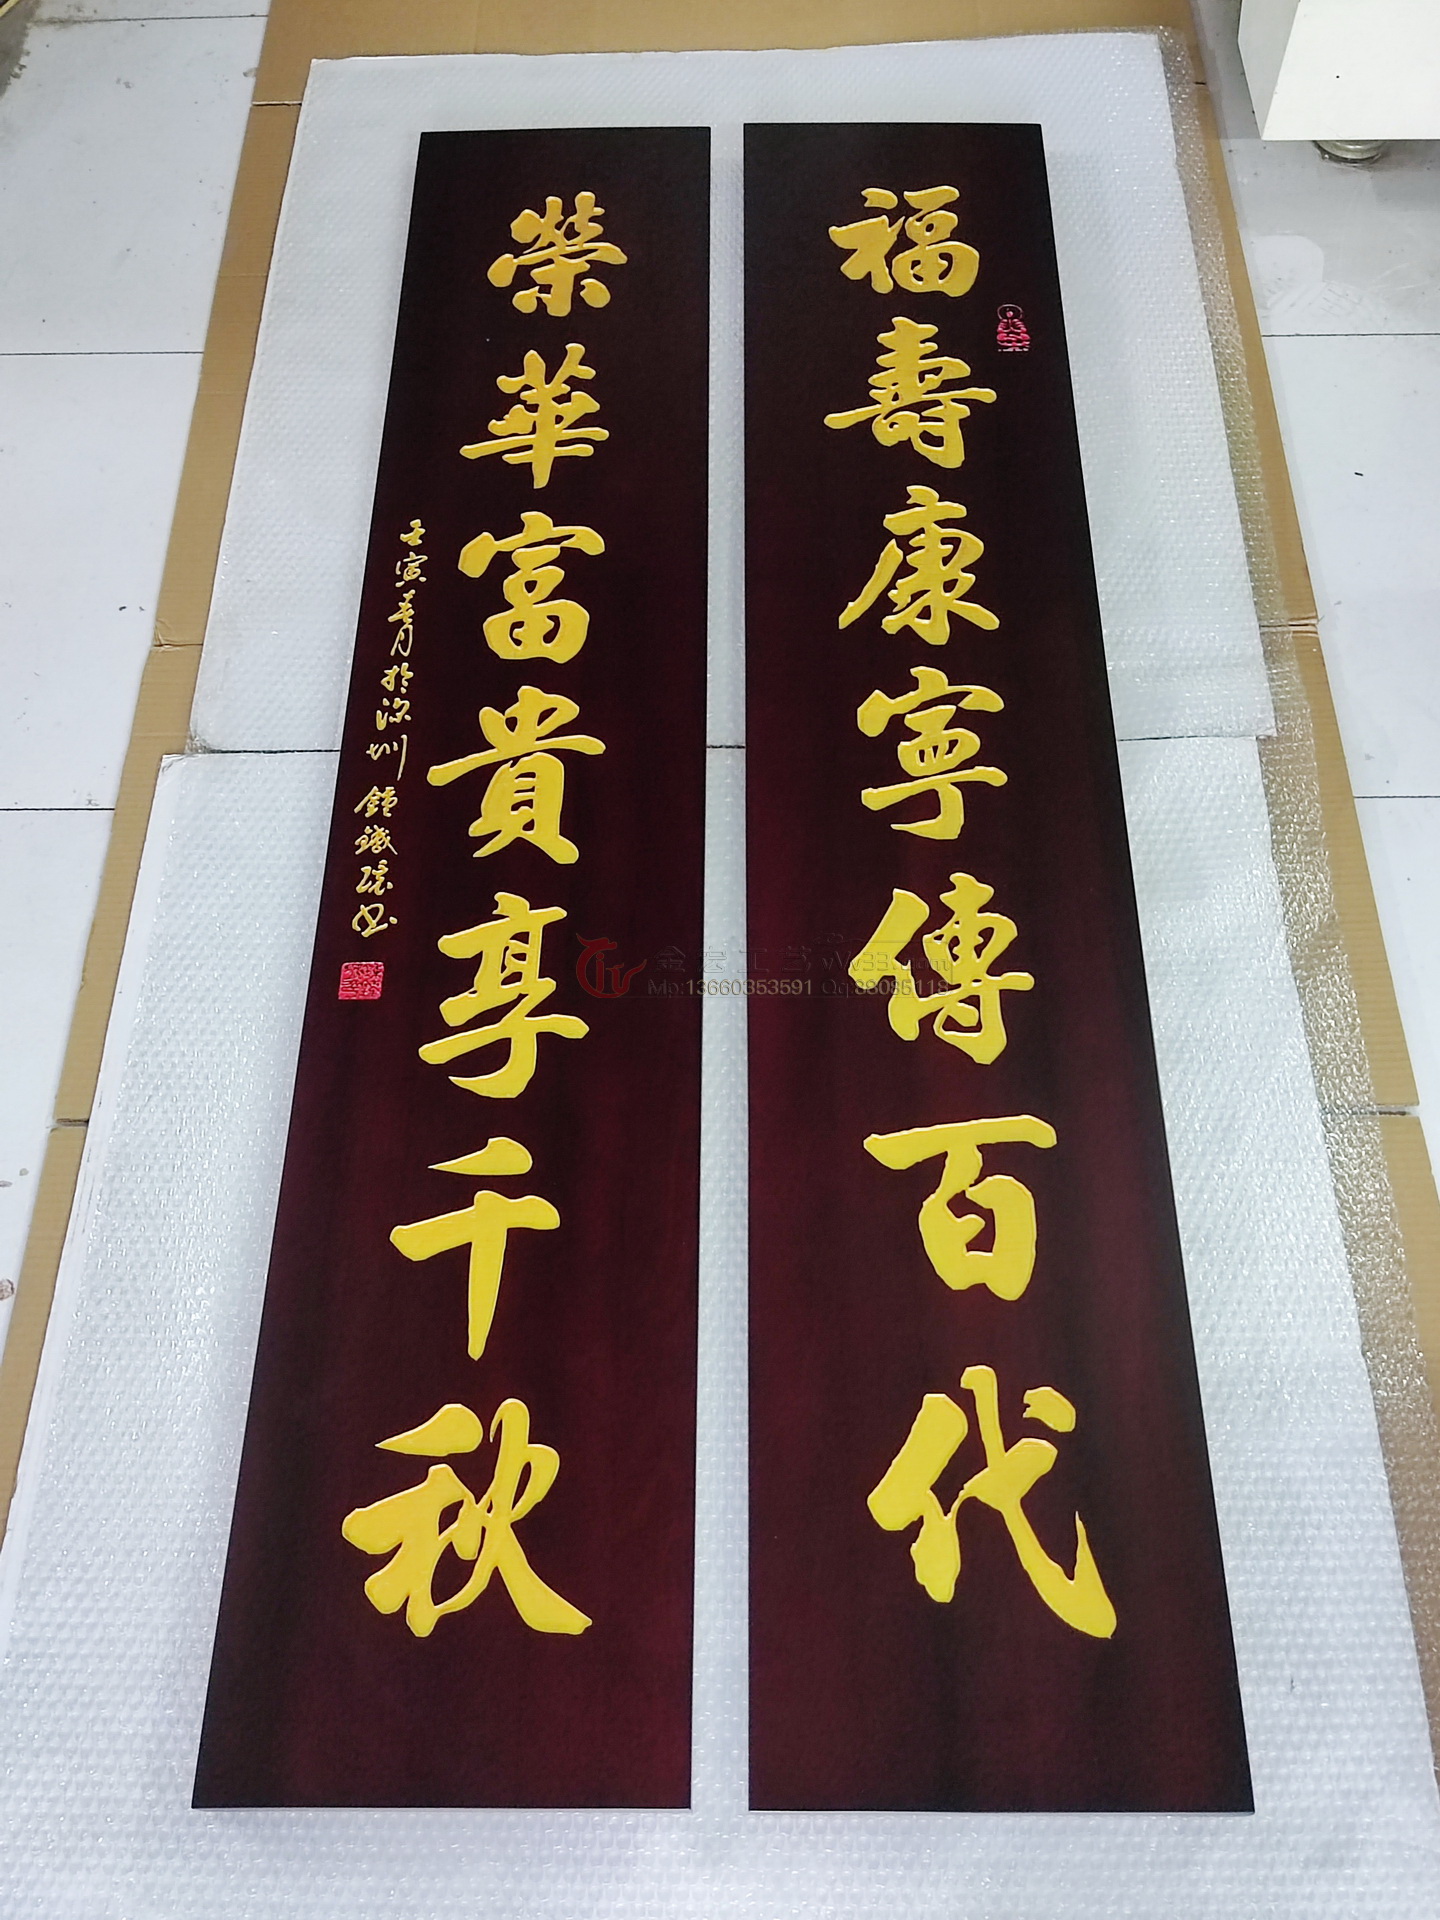 福壽康寧傳百代
榮華富貴享千秋
壬寅春月於深圳 鐘鐵
金宏工艺 YW33.com
Mp:13660353591 Qq:88095118